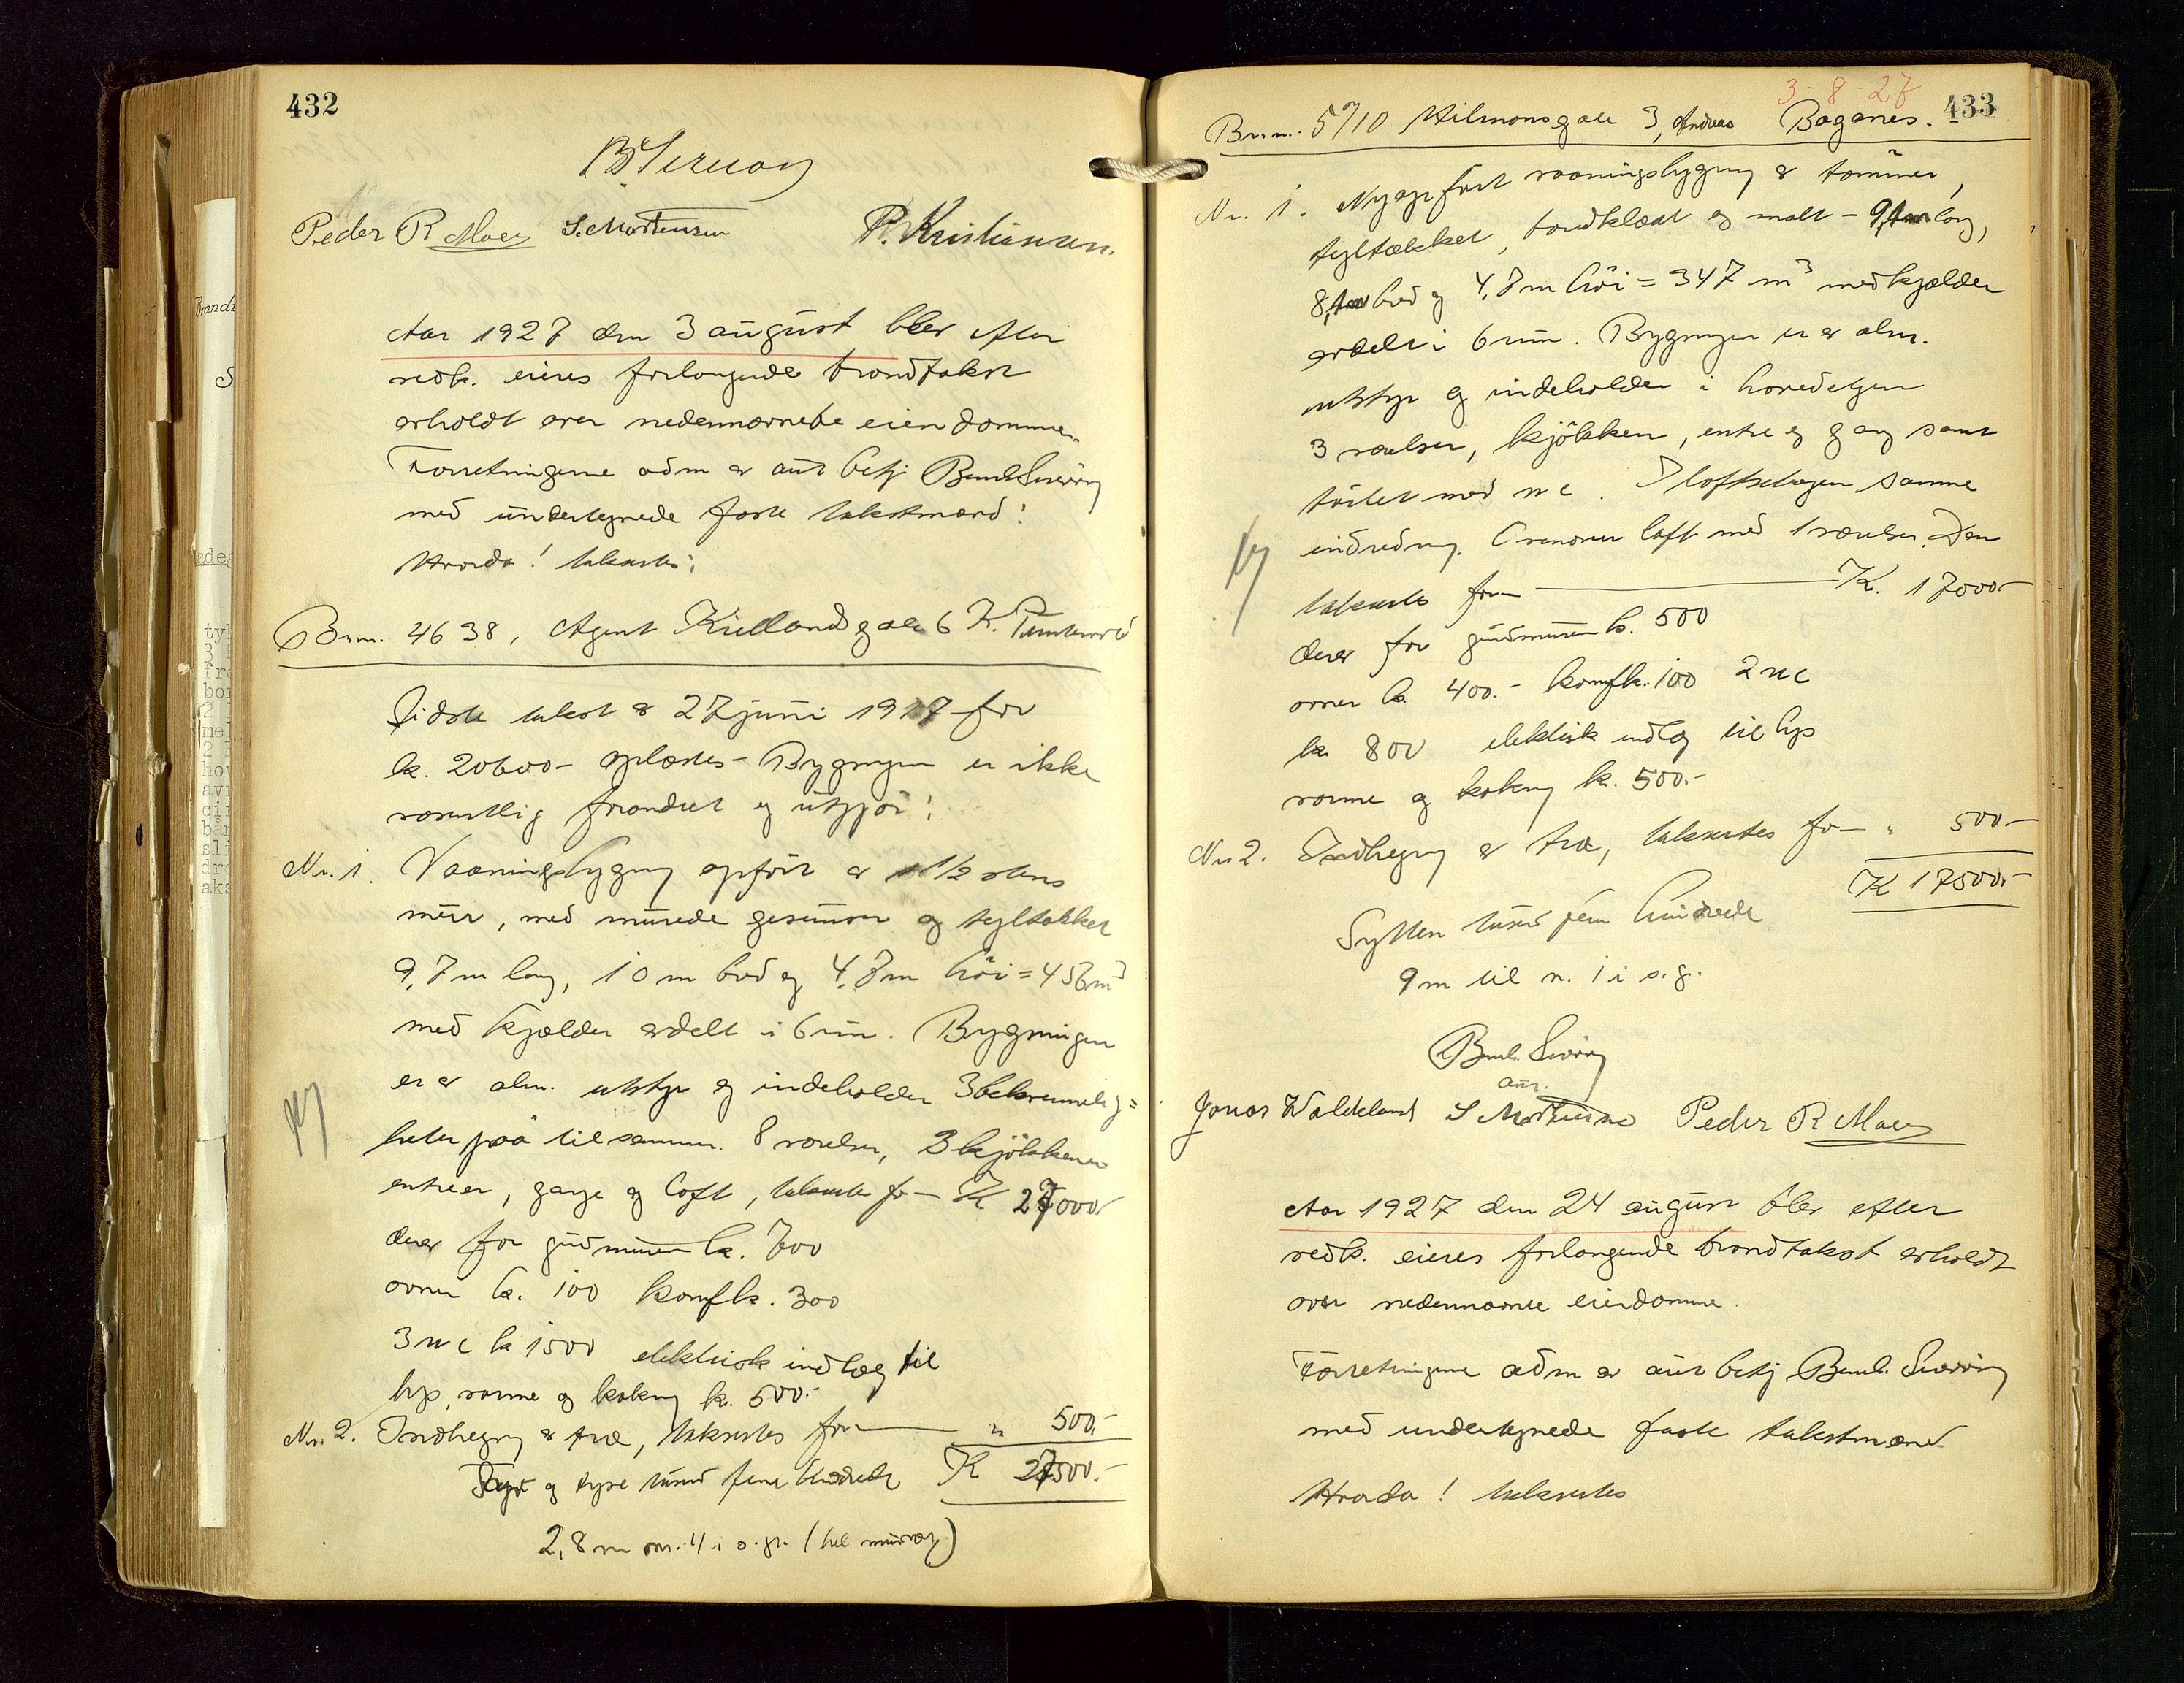 432
Peder R Moen S. Mortensen P. Kristiansen.
Aar 1927 den 3 august blev efter
vedk. eieres forlangende brandtakst
avholdt over nedennævnte eiendomme.
Forretningerne adm av aut betj
med undertegnede faste takstmænd:
Hvorda! takserte:
Brnr. 4638, Agent Kiellandsgate 6 K.
Sidste takst av 27 juni 1917 for
kr. 20600- oplæstes - Bygningen er ikke
væsentlig forandret og utgjør:
Nr. 1. Vaaningsbygning opført av 1 1/2 stens
mur, med murede gesimser og tegltækket
9,7 m lang, 10 m bred og 4,7 m høi = 456 m3
med kjælder avdelt i 6 rum. Bygningen
er av alm. utstyr og indeholder 3 bekvemmelig=
heter paa tilsammen 8 værelser, 3 kjøkkener
entreer, gange og loft, takseres for K 27000
derav for grundmuren kr. 700
ovner kr. 100 komf kr. 300
3 wc kr 1500 elektrisk indlæg til
lys, varme og kokning kr. 500.-
Nr. 2. Indhegning av træ, takseres for " 500.-
Syv og tyve tusind fem hundrede K 27500.-
2,8 m nr. 4 i s. gt. (hel murvæg)
3-8-27
433
Brnr. 5710 Hilmarsgate 3, Andreas Boganes.
Nr. 1. Nyopført vaaningsbygning av tømmer,
tegltækket, bordklædt og malt - 9, m lang,
8, m bred og 4,7 m høi = 347 m3 med kjælder
avdelt i 6 rum. Bygningen er av alm.
utstyr og indeholder i hovedetagen
3 værelser, kjøkken, entre og gang samt
toilet med wc. I loftsetagen samme
indredning. Ovenover loft med 1 værelse. Den
takseres for K. 17000-
derav for grundmuren kr. 500
ovner kr. 400.- komf kr. 100 2 wc
kr 800 elektrisk indlæg til lys
varme og kokning kr. 500.-
Nr 2. Indhegning av træ, takseres for " 500-
K 17500.-
Sytten tusind fem hundrede
9 m til nr. 1 i s. g.
aut.
Jonas Waldeland S Mortensen Peder R Moen
Aar 1927 den 24 august blev efter
vedk. eieres forlangende brandtakst avholdt
over nedennævnte eiendomme.
Forretningerne adm av aut betj
med undertegnede faste takstmænd
Hvorda! takserte